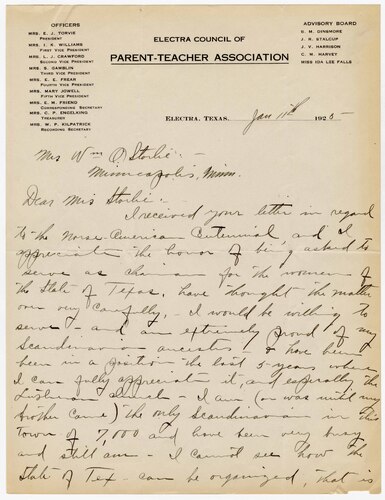 OFFICERS
MRS. E. J. TORVIE
PRESIDENT
MRS. I. K. WILLIAMS
FIRST VICE PRESIDENT
MRS. L. J. CRAWFORD
SECOND VICE PRESIDENT
MRS. S. GAMBLIN
THIRD VICE PRESIDENT
MRS. E. E. FREAR
FOURTH VICE PRESIDENT
MRS. MARY JOWELL
FIFTH VICE PRESIDENT
MRS. E. M. FRIEND
CORRESPONDING SECRETARY
MRS. C. P. ENGELKING
TREASURER
MRS. W. P. KILPATRICK
RECORDING SECRETARY
ELECTRA COUNCIL OF
PARENT-TEACHER ASSOCIATION
ADVISORY BOARD
S. M. DINSMORE
J. R. STALCUP
J. V. HARRISON
C. M. HARVEY
MISS IDA LEE FALLS
ELECTRA, TEXAS, Jan 11th 1925-
Mrs Wm O Storlie:-
Minneapolis, Minn.
Dear Mrs Storlie:-
I received your letter in regard
to the Norse-American Centennial and I
appreciate the honor of being asked to
serve as chairman for the women of
the State of Texas, have thought the matter
over very carefully,- I would be willing to
serve- and am extremely proud of my
Scandinavian ancestors- & have been
been in a position the last 5 years where
I can fully appreciate it, and especially the
Lutheran Church- I am (or was until my
brother came) the only Scandinavian in this
town of 7,000 and have been very busy
and still am- I cannot see how the
State of Tex- can be organized, that is